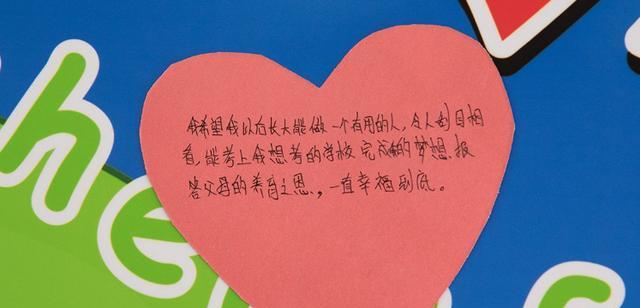 我希望我以后长大能做一个有用的人,令人刮目相
看,能考上我想考的学校 完成我的梦想.报
答父母的养育之恩.,一直幸福到底。